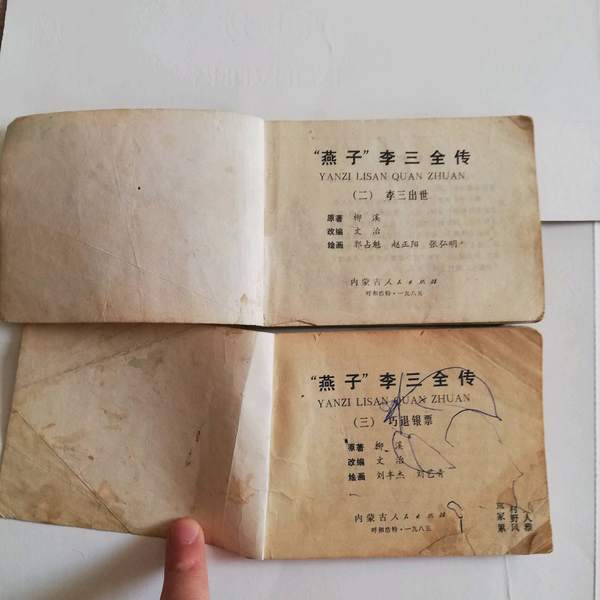 “燕子”李三全传
YANZI LISAN QUAN ZHUAN
（二） 李三出世
原著 柳溪
改编 文治
绘画 郭占魁 赵正阳 张弘明
内蒙古人民出版社
呼和浩特·一九八五
“燕子”李三全传
YANZI LISAN QUAN ZHUAN
（三） 巧退银票
原著 柳溪
改编 文治
绘画 刘丰杰
内蒙古人民出版社
呼和浩特·一九八五